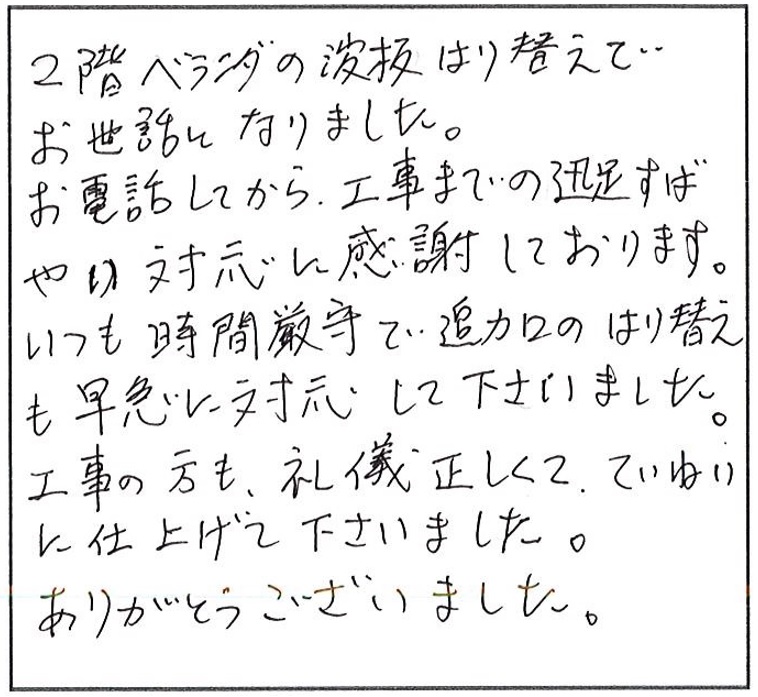 2階ベランダの波板はり替えで
お世話になりました。
お電話してから、工事までの迅足すば
やい対応に感謝しております。
いつも時間厳守で追加のはり替え
も早急に対応して下さいました。
工事の方も、礼儀正しくて、ていねい
に仕上げて下さいました。
ありがとうございました。